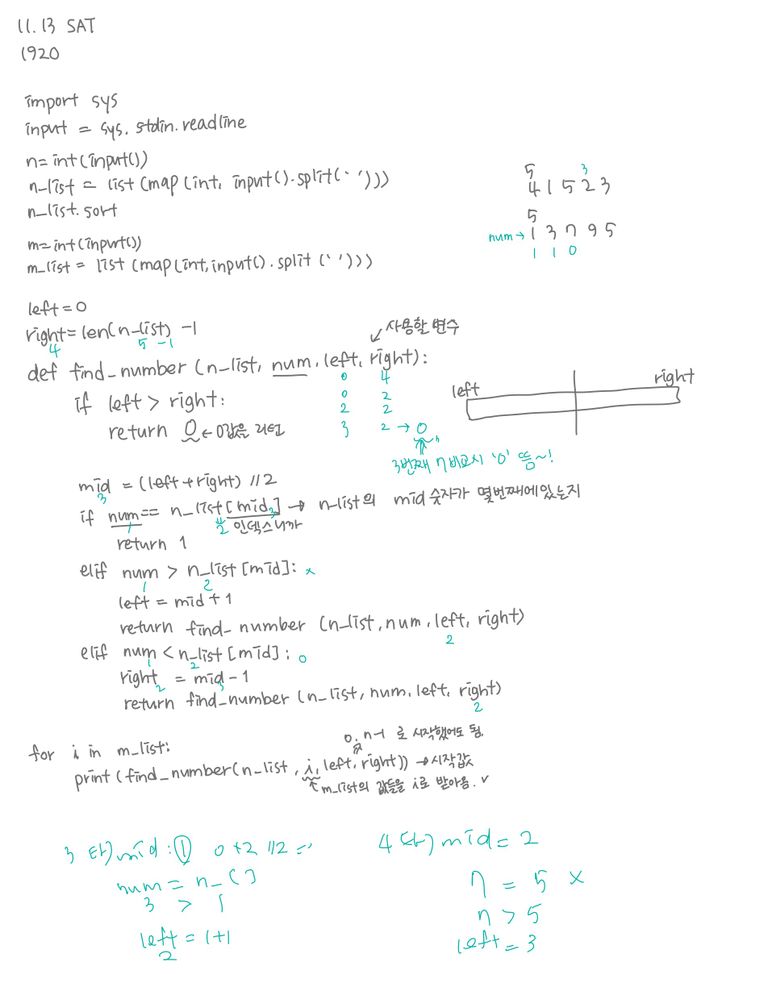 11.13 SAT
1920
import sys
input = sys.stdin.readline
n=int(input())
n_list = list(map(int, input().split(' ')))
n_list.sort
m=int(input())
m_list = list(map(int,input().split(' ')))
5 3
4 1 5 2 3
5
num→ 1 3 7 9 5
1 1 0
left=0
right=len(n_list) -1
4 5 -1
사용할 변수
def find_number (n_list, num, left, right):
0 4
if left > right:
0 2
2 2
return 0 ←0값을 리턴
3 2 → 0
3번째 7 비교시 '0' 뜸~!
left right
mid = (left+right) //2
3
if num== n_list[mid] → n-list의 mid숫자가 몇번째에있는지
2 인덱스니까
return 1
elif num > n_list[mid]: x
1 2
left = mid+1
return find_number (n_list, num, left, right)
2
elif num < n_list[mid]: o
1 2
right = mid-1
2 3
return find_number (n_list, num, left, right)
2
0, n-1 로 시작했어도 됨.
for i in m_list:
print (find_number(n_list, i, left, right)) →시작값
m_list의 값들을 i로 받아옴. ✓
3 mid : ① 0+2 //2 =
num = n_[]
3 > 1
left = 1+1
2
4 mid = 2
7 = 5 x
7 > 5
left = 3